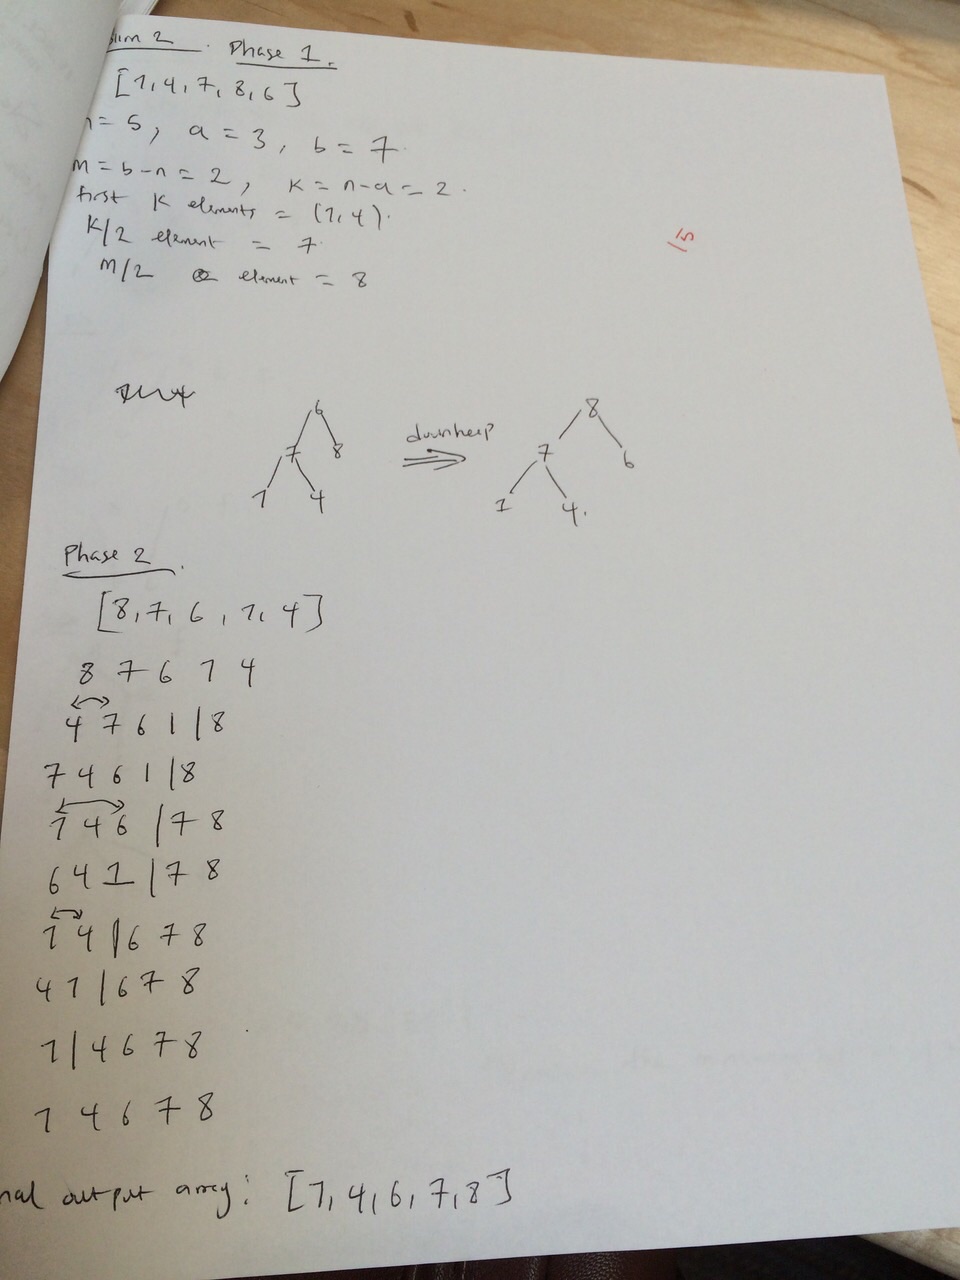 Phase 1.
[1, 4, 7, 8, 6]
n = 5, a = 3, b = 7.
m = b-n = 2, k = n-a = 2.
first K elements = (1, 4).
K/2 element = 7
m/2 element = 8
6
7 8
1 4
downheap
8
7 6
1 4.
Phase 2.
[8, 7, 6, 1, 4]
8 7 6 1 4
4 7 6 1 | 8
7 4 6 1 | 8
1 4 6 | 7 8
6 4 1 | 7 8
1 4 | 6 7 8
4 1 | 6 7 8
1 | 4 6 7 8
1 4 6 7 8
output array: [1, 4, 6, 7, 8]